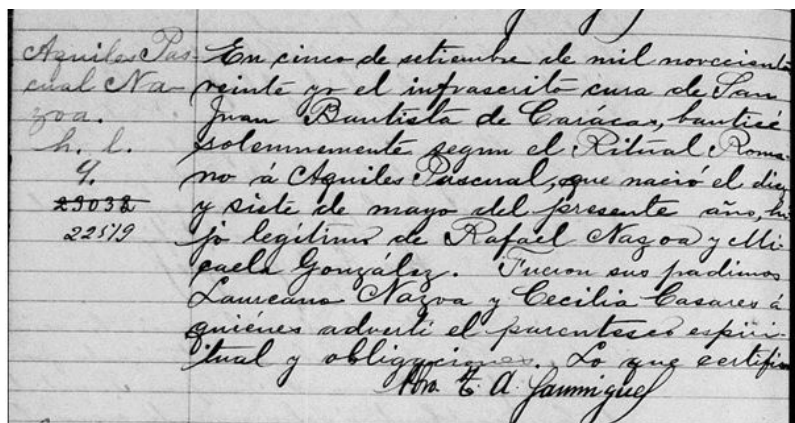 Aquiles Pas-
cual Na
zoa.
h. l.
9.
23038
22579
En cinco de setiembre de mil novecientos
veinte yo el infrascrito cura de San
Juan Bautista de Carácas, bauticé
solemnemente segun el Ritual Roma-
no á Aquiles Pascual, que nació el diez
y siete de mayo del presente año, hi-
jo legítimo de Rafael Nazoa y Mi-
caela González. Fueron sus padrinos
Laureano Nazoa y Cecilia Casares á
quiénes advertí el parentesco espiri-
tual y obligaciones. Lo que certifico
Pbro. A. Sanmiguel